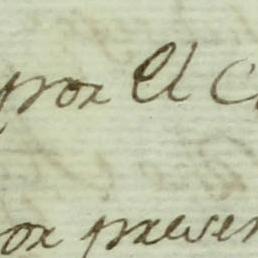 por el C
or presen